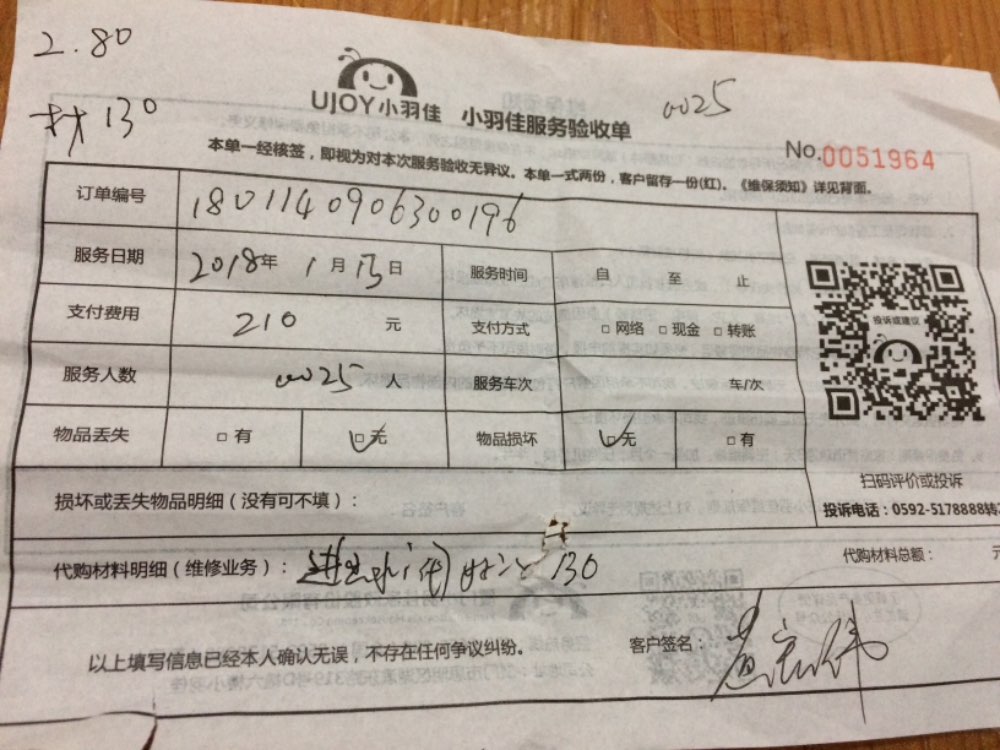 2.80
材 130
UJOY小羽佳 小羽佳服务验收单
0025
No.0051964
本单一经核签，即视为对本次服务验收无异议。本单一式两份，客户留存一份(红)。《维保须知》详见背面。
订单编号 1801140906300196
服务日期 2018年 1 月 13 日 服务时间 自 至 止
支付费用 210 元 支付方式 □网络 □现金 □转账
服务人数 0025 人 服务车次 车/次
物品丢失 □有 ☑无 物品损坏 ☑无 □有
投诉或建议
扫码评价或投诉
投诉电话：0592-5178888转
损坏或丢失物品明细（没有可不填）：
代购材料明细（维修业务）： 130 代购材料总额： 元
以上填写信息已经本人确认无误，不存在任何争议纠纷。 客户签名：